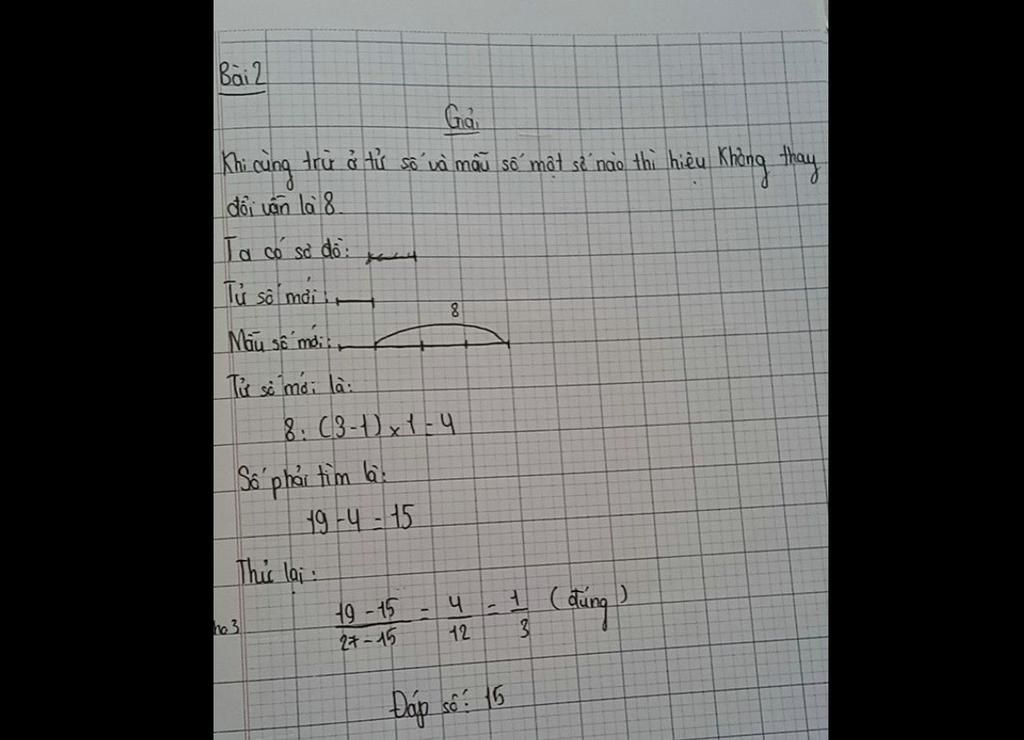 Bài 2
Giải
Khi cùng trừ ở tử số và mẫu số một số nào thì hiệu không thay
đổi vẫn là 8.
Ta có sơ đồ:
Tử số mới:
8
Mẫu số mới:
Tử số mới là:
8 : (3-1) x 1 = 4
Số phải tìm là:
19 - 4 = 15
Thử lại:
19 - 15 / 27 - 15 = 4 / 12 = 1 / 3 (đúng)
ho 3
Đáp số: 15